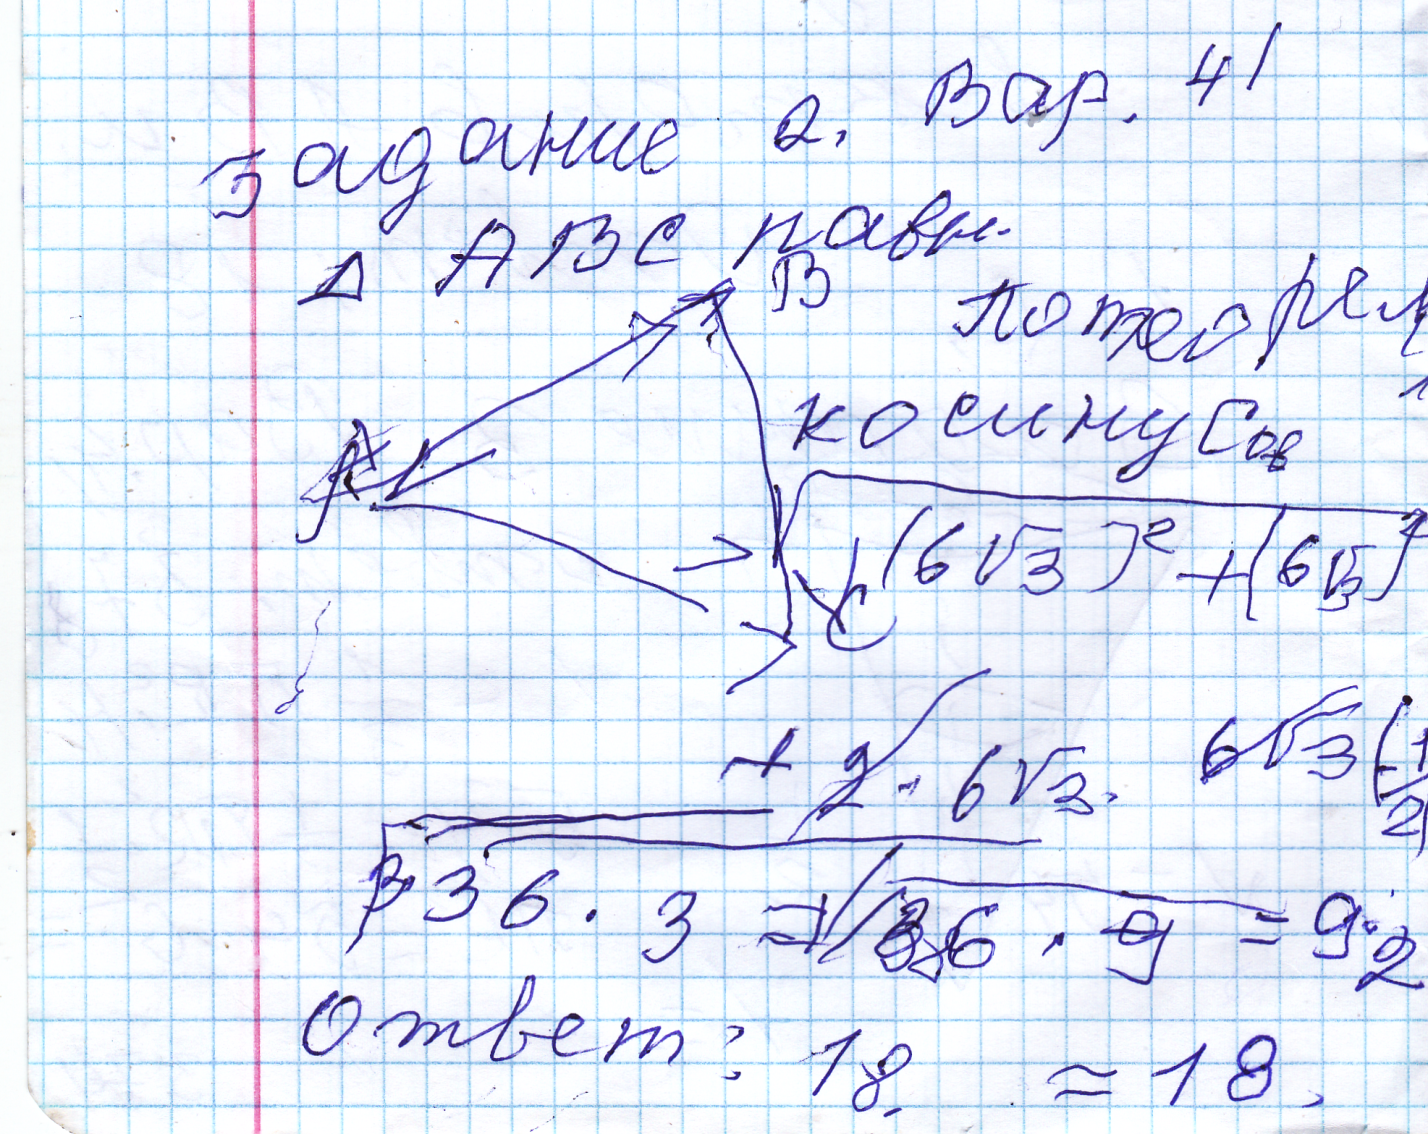 Задание 2. Вар. 41
Δ ABC равн.
B
По теорем
косинусов
A
√(6√3)² + (6√3)²
C
+ 2 · 6√3 · 6√3 (-1/2)
√3·36·3 = √36·9 = 9·2
Ответ: 18. = 18.